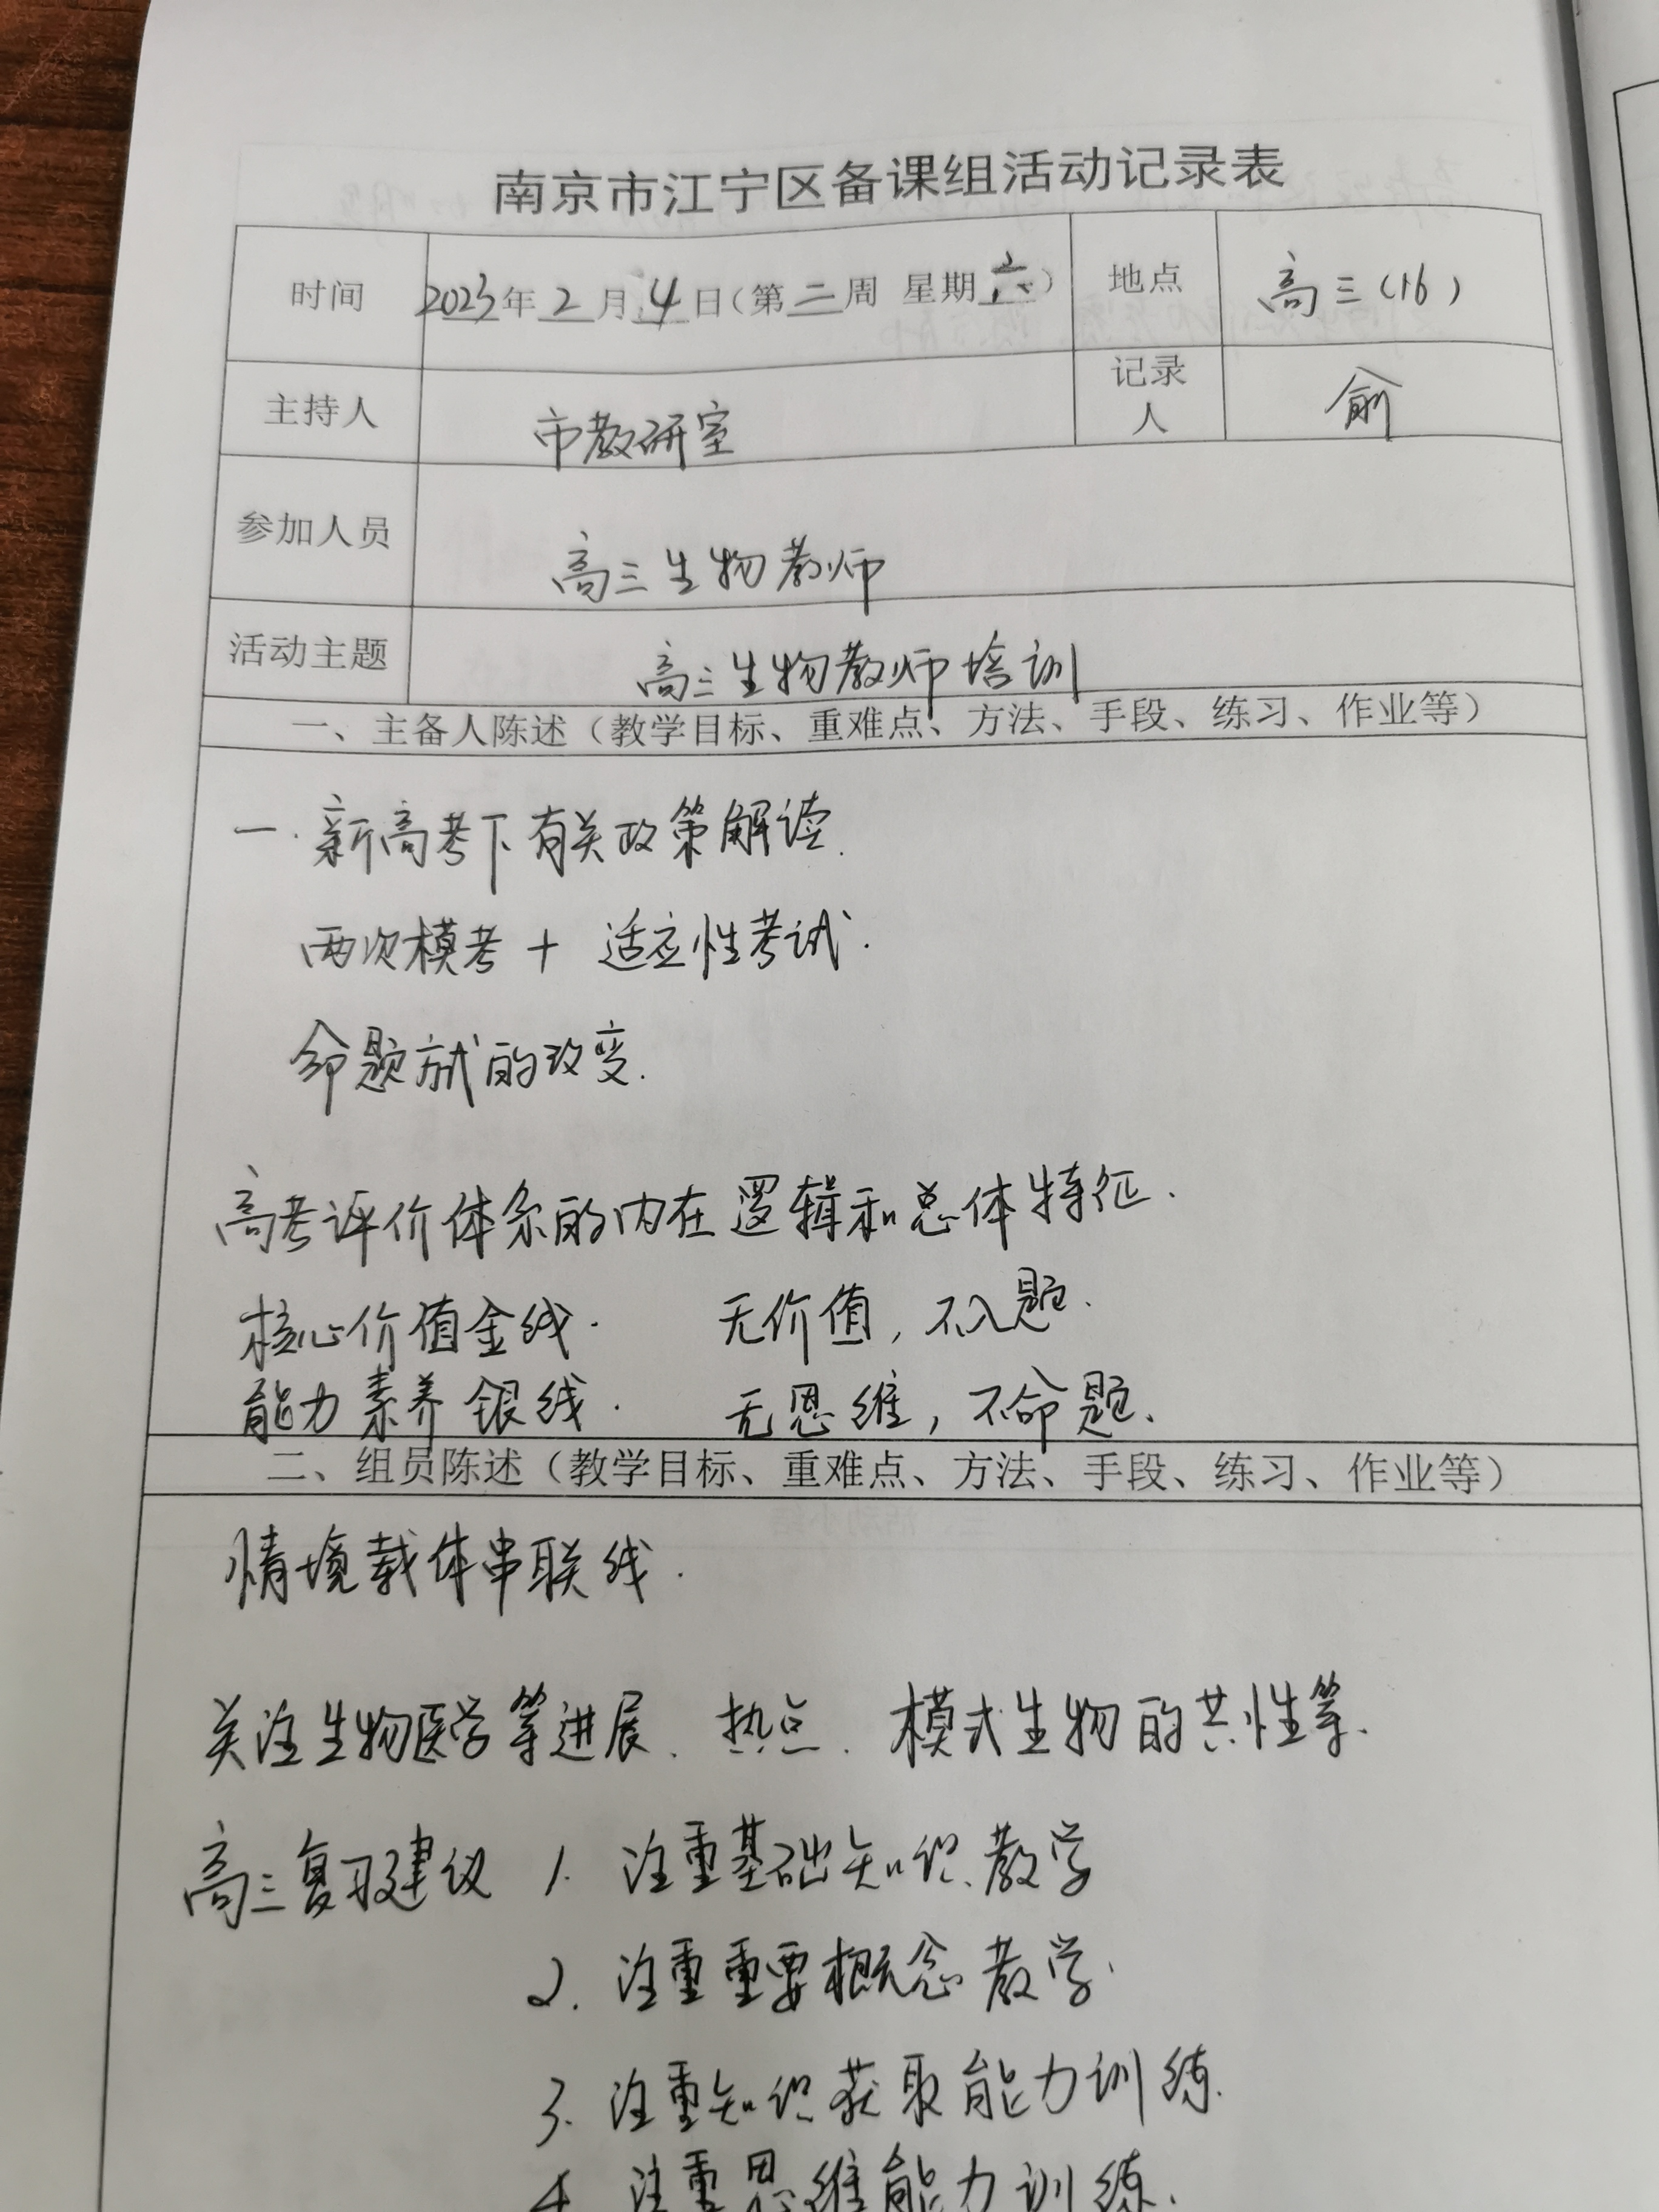 南京市江宁区备课组活动记录表
时间 2023年2月4日(第二周 星期六) 地点 高三(16)
主持人 市教研室 记录人 俞
参加人员 高三生物教师
活动主题 高三生物教师培训
一、主备人陈述（教学目标、重难点、方法、手段、练习、作业等）
一.新高考下有关政策解读.
两次模考+适应性考试.
命题方式的改变.
高考评价体系的内在逻辑和总体特征.
核心价值金线. 无价值,不入题.
能力素养银线. 无思维,不命题.
二、组员陈述（教学目标、重难点、方法、手段、练习、作业等）
情境载体串联线.
关注生物医学等进展、热点、模式生物的共性等.
高三复习建议 1.注重基础知识教学
2.注重重要概念教学.
3.注重知识获取能力训练.
4.注重思维能力训练.